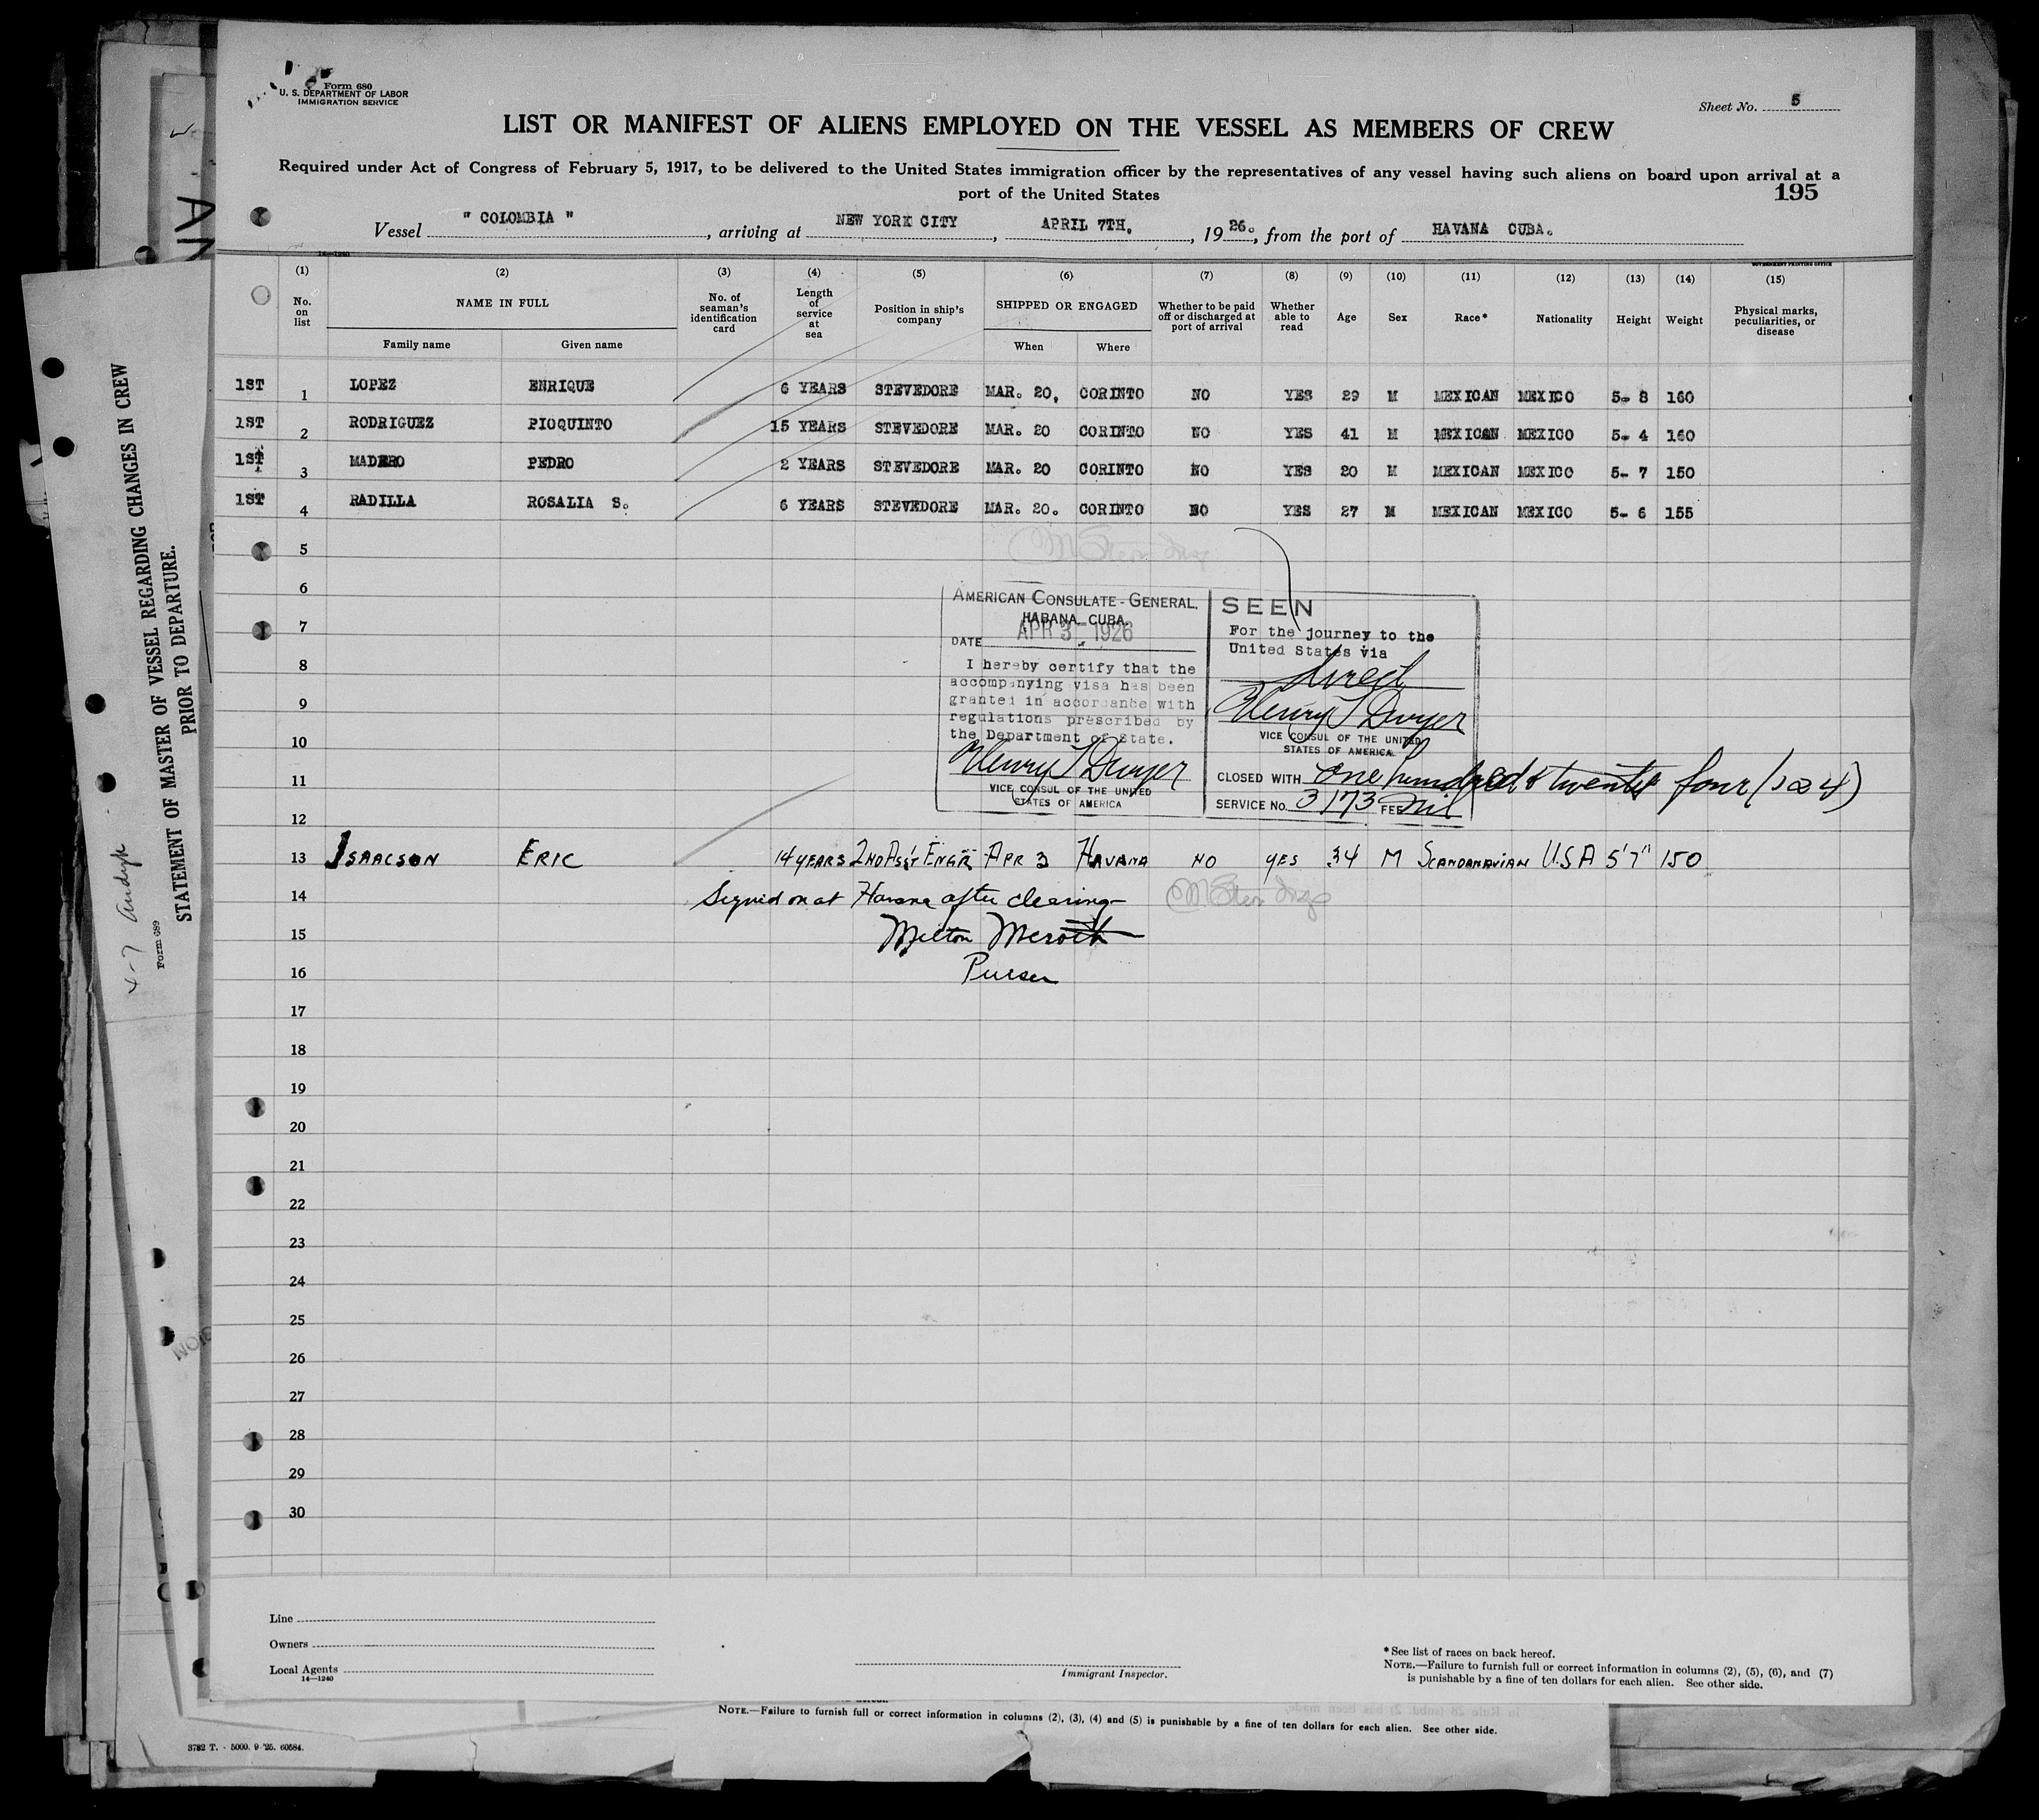 Form 680
U. S. DEPARTMENT OF LABOR
IMMIGRATION SERVICE
Sheet No. 5
LIST OR MANIFEST OF ALIENS EMPLOYED ON THE VESSEL AS MEMBERS OF CREW
Required under Act of Congress of February 5, 1917, to be delivered to the United States immigration officer by the representatives of any vessel having such aliens on board upon arrival at a
port of the United States
195
Vessel " COLOMBIA ", arriving at NEW YORK CITY, APRIL 7TH., 1926., from the port of HAVANA CUBA.
14—1240
GOVERNMENT PRINTING OFFICE
(1) (2) (3) (4) (5) (6) (7) (8) (9) (10) (11) (12) (13) (14) (15)
No. on list NAME IN FULL No. of seaman's identification card Length of service at sea Position in ship's company SHIPPED OR ENGAGED Whether to be paid off or discharged at port of arrival Whether able to read Age Sex Race* Nationality Height Weight Physical marks, peculiarities, or disease
Family name Given name When Where
1ST 1 LOPEZ ENRIQUE 6 YEARS STEVEDORE MAR. 20, CORINTO NO YES 29 M MEXICAN MEXICO 5- 8 160
1ST 2 RODRIGUEZ PIOQUINTO 15 YEARS STEVEDORE MAR. 20 CORINTO NO YES 41 M MEXICAN MEXICO 5- 4 160
1ST 3 MADERO PEDRO 2 YEARS STEVEDORE MAR. 20 CORINTO NO YES 20 M MEXICAN MEXICO 5- 7 150
1ST 4 RADILLA ROSALIA S. 6 YEARS STEVEDORE MAR. 20. CORINTO NO YES 27 M MEXICAN MEXICO 5- 6 155
5
6
7
8
9
10
11
12
AMERICAN CONSULATE-GENERAL.
HABANA CUBA.
DATE APR 3 - 1926
I hereby certify that the
accompanying visa has been
granted in accordance with
regulations prescribed by
the Department of State.
Henry T Dwyer
VICE CONSUL OF THE UNITED
STATES OF AMERICA
SEEN
For the journey to the
United States via
direct
Henry T Dwyer
VICE CONSUL OF THE UNITED
STATES OF AMERICA.
CLOSED WITH One hundred & twenty four (124)
SERVICE No. 3173 FEE Nil
13 ISAACSON ERIC 14 YEARS 2ND ASS'T ENGR APR 3 HAVANA NO YES 34 M SCANDANAVIAN U.S.A 5'7" 150
14 Signed on at Havana after clearing—
15 Milton Meroth
16 Purser
17
18
19
20
21
22
23
24
25
26
27
28
29
30
Line
Owners
Local Agents
14—1240
Immigrant Inspector.
*See list of races on back hereof.
NOTE.—Failure to furnish full or correct information in columns (2), (5), (6), and (7)
is punishable by a fine of ten dollars for each alien. See other side.
NOTE.—Failure to furnish full or correct information in columns (2), (3), (4) and (5) is punishable by a fine of ten dollars for each alien. See other side.
3782 T. - 5000. 9-'25. 60584.
Form 689
STATEMENT OF MASTER OF VESSEL REGARDING CHANGES IN CREW
PRIOR TO DEPARTURE.
4-7